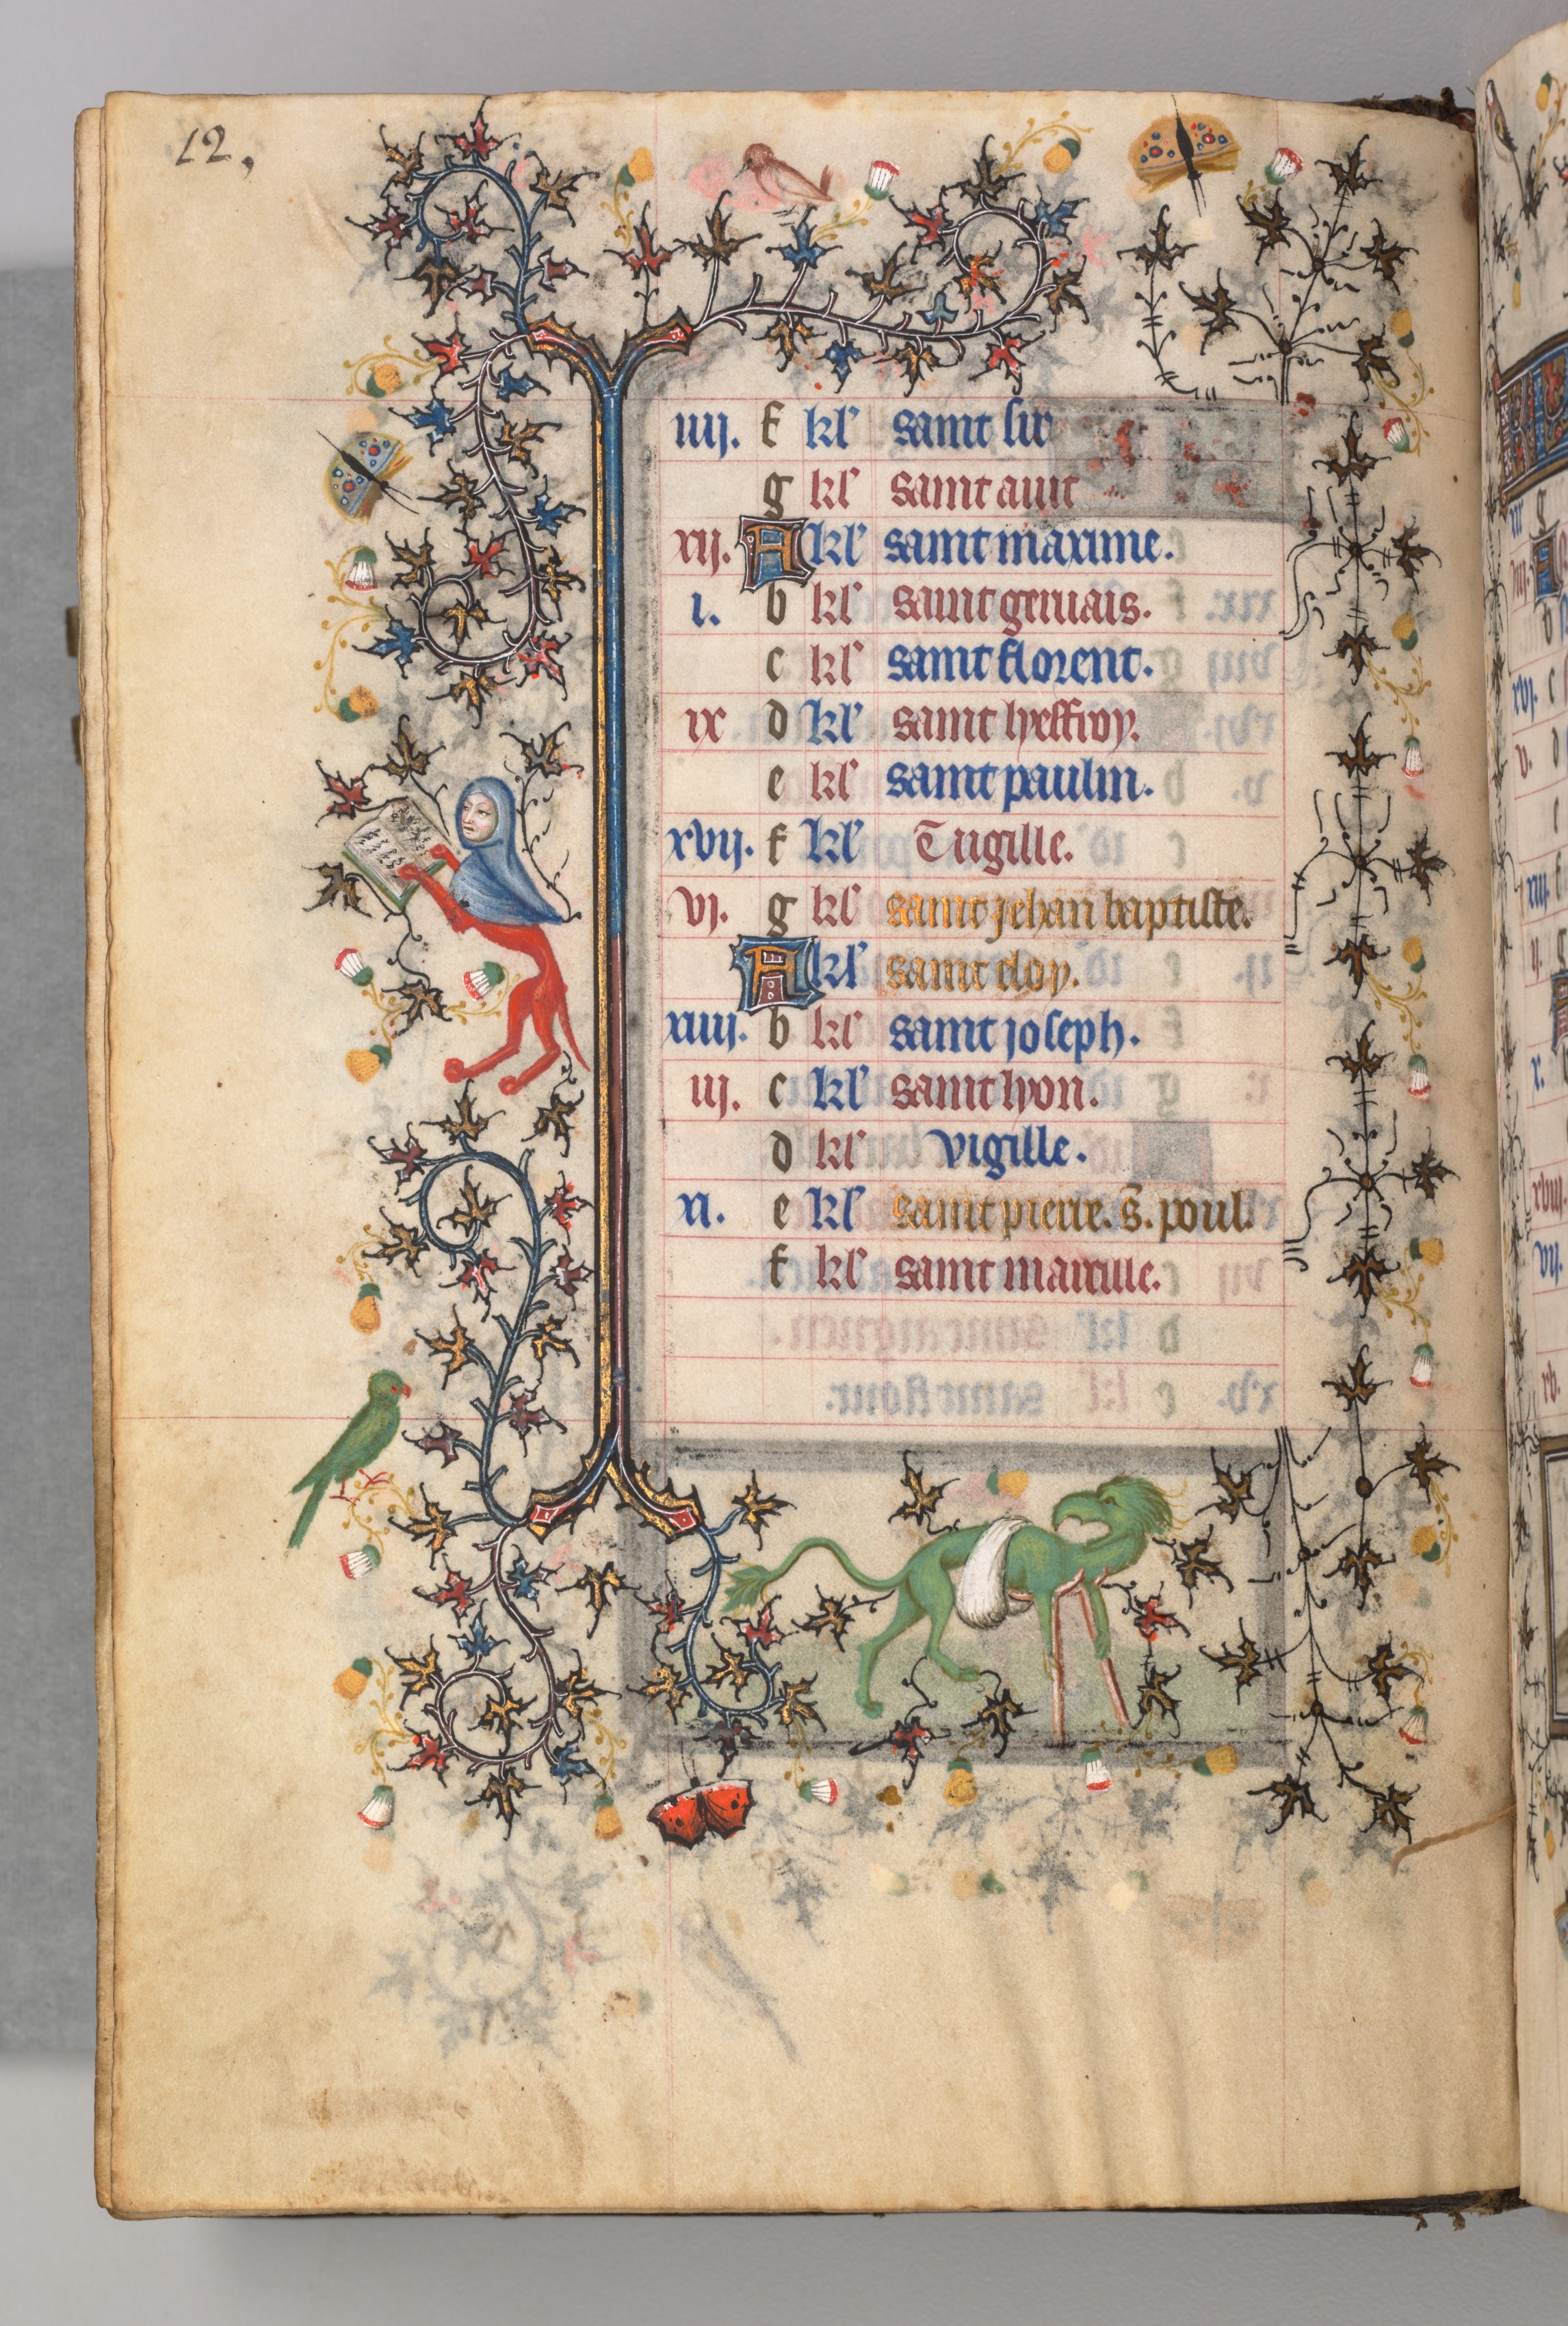 12,
iiij. f kl' saint sir
g kl' saint auit
xij. A kl' saint maxime.
i. b kl' saint geruais.
c kl' saint florent.
ix d kl' saint heffroy.
e kl' saint paulin.
xvij. f kl' Uigille.
vj. g kl' saint jehan baptiste.
A kl' saint eloy.
xiiij. b kl' saint joseph.
iij. c kl' saint lyon.
d kl' vigille.
xi. e kl' saint pierre. s. poul.
f kl' saint marcille.